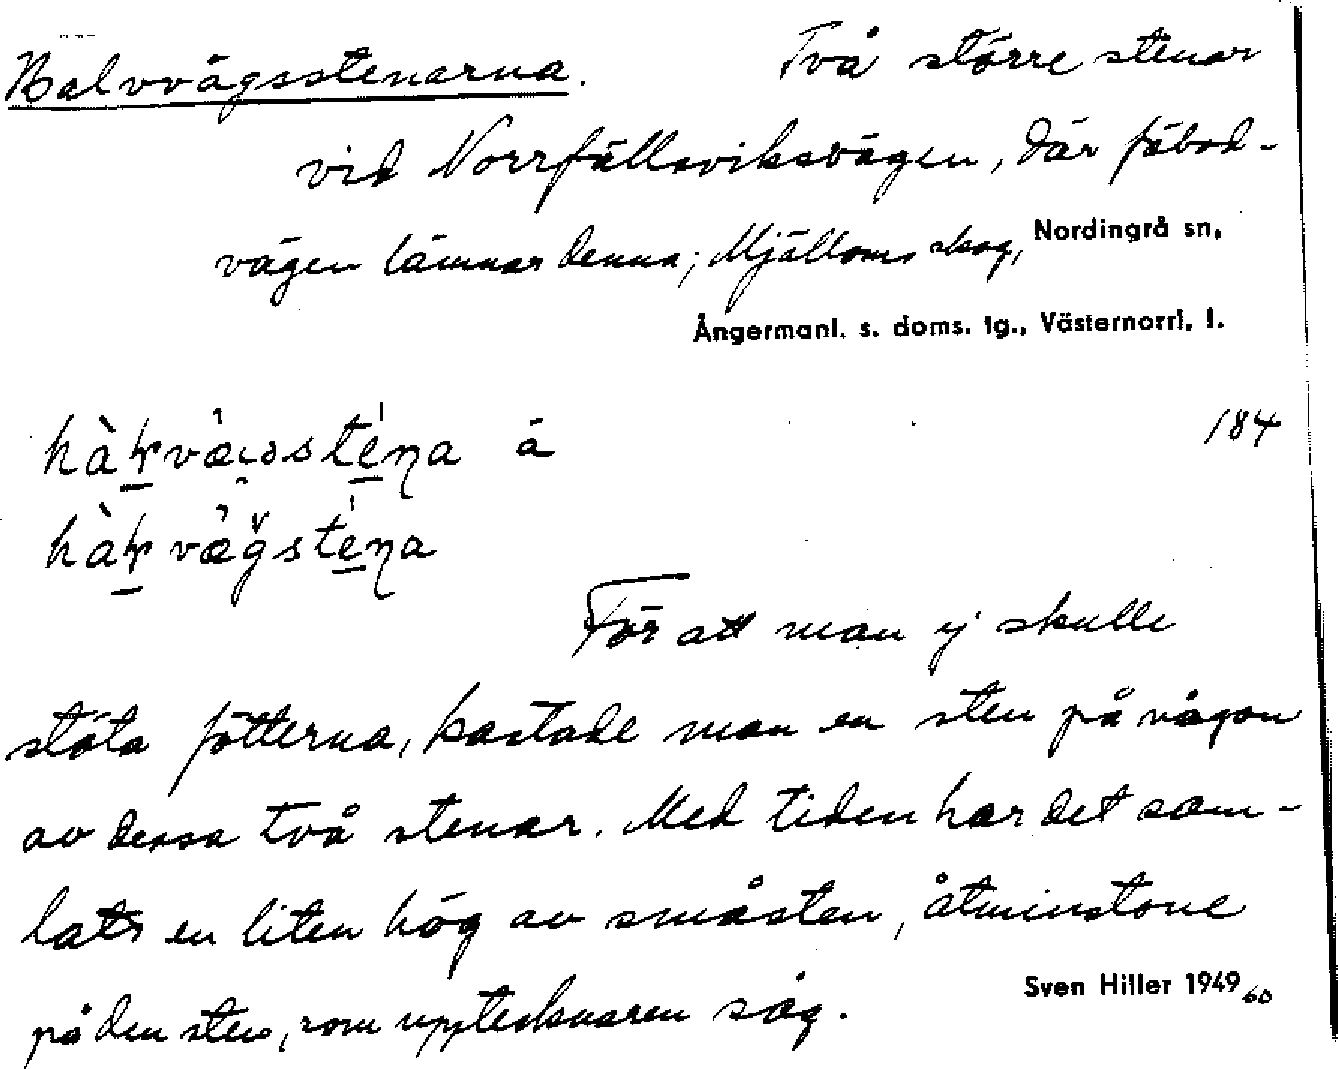 Halvvägsstenarna. Två större stenar
vid Norrfällsviksvägen, där fäbod-
vägen lämnar denna; Mjälloms skog, Nordingrå sn,
Ångermanl. s. doms. tg., Västernorrl. l.
184
å
För att man ej skulle
stöta fötterna, kastade man en sten på någon
av dessa två stenar. Med tiden har det sam-
lats en liten hög av småsten, åtminstone
på den sten, som upptecknaren såg.
Sven Hiller 1949
60